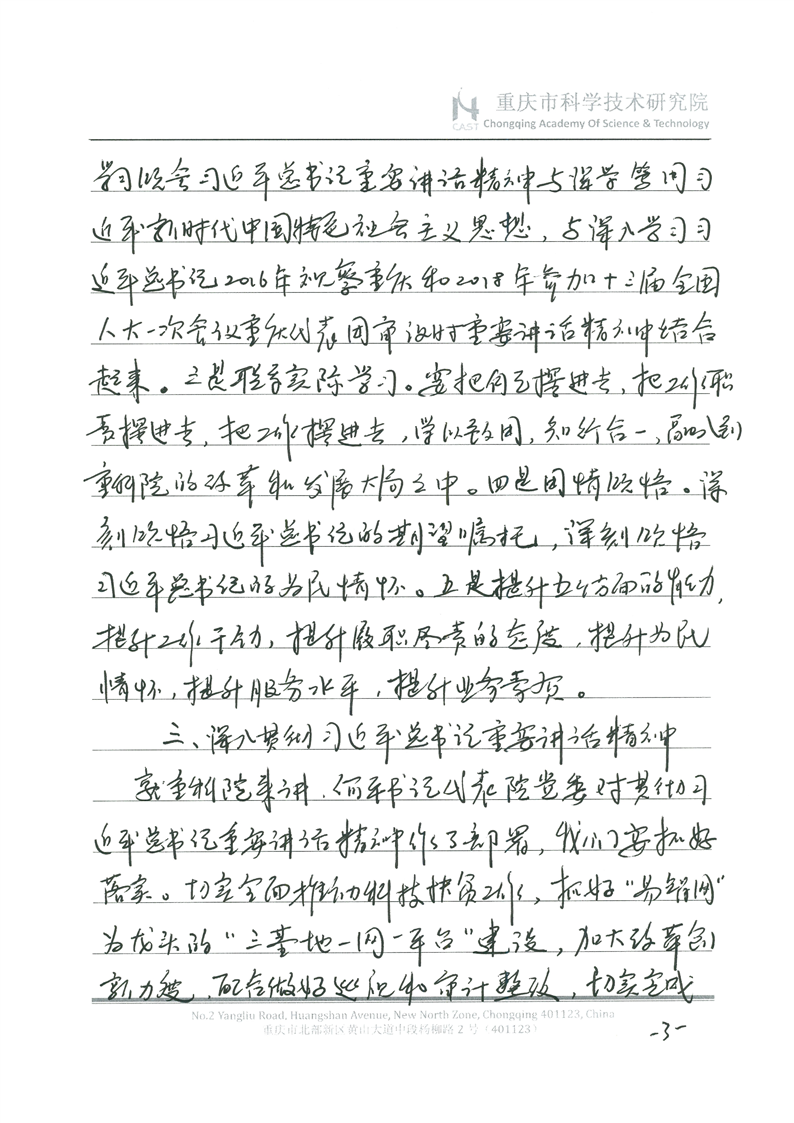 重庆市科学技术研究院
CAST Chongqing Academy Of Science & Technology
学习领会习近平总书记重要讲话精神与深学笃用习
近平新时代中国特色社会主义思想，与深入学习习
近平总书记2016年视察重庆和2018年参加十三届全国
人大一次会议重庆代表团审议时重要讲话精神结合
起来。三是联系实际学习。要把自己摆进去，把工作职
责摆进去，把工作摆进去，学以致用，知行合一，到
重科院的改革和发展大局之中。四是用情领悟。深
刻领悟习近平总书记的期望嘱托，深刻领悟
习近平总书记的为民情怀。五是提升五个方面的能力，
提升工作干劲，提升履职尽责的态度，提升为民
情怀，提升服务水平，提升业务素质。
三、深入贯彻习近平总书记重要讲话精神
就重科院来讲，何平书记代表院党委对贯彻习
近平总书记重要讲话精神作了部署，我们要抓好
落实。切实全面推动科技扶贫工作，抓好“易智网”
为龙头的“三基地一网一平台”建设，加大改革创
新力度，配合做好巡视和审计整改，切实完成
No.2 Yangliu Road, Huangshan Avenue, New North Zone, Chongqing 401123, China
重庆市北部新区黄山大道中段杨柳路2号（401123）
-3-